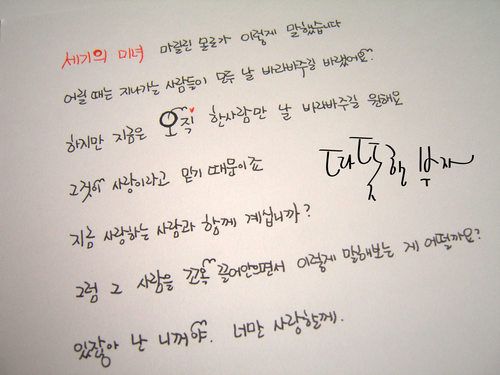 세기의 미녀 마릴린 몬로가 이렇게 말했습니다
어릴 때는 지나가는 사람들이 모두 날 바라봐주길 바랬어요.
하지만 지금은 오직 한사람만 날 바라봐주길 원해요
그것이 사랑이라고 믿기 때문이죠
따뜻한 부자
지금 사랑하는 사람과 함께 계십니까?
그럼 그 사람을 꼬옥 끌어안으면서 이렇게 말해보는 게 어떨까요?
있잖아 난 니꺼야. 너만 사랑할께.